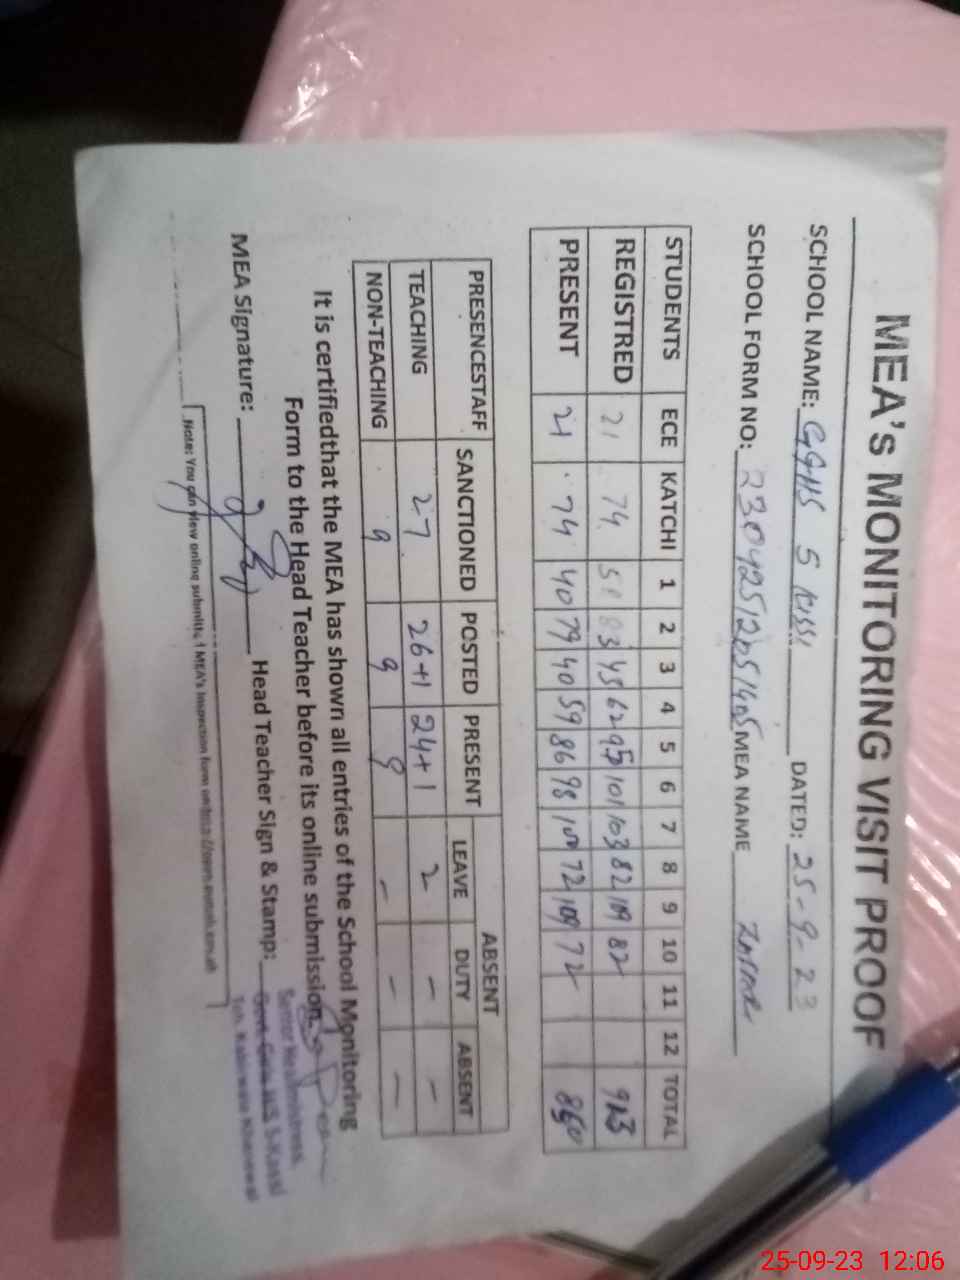 MEA's MONITORING VISIT PROOF
SCHOOL NAME: GGHS 5 KISSI DATED: 25-9-23
SCHOOL FORM NO: MEA NAME
STUDENTS ECE KATCHI 1 2 3 4 5 6 7 8 9 10 11 12 TOTAL
REGISTRED 21 74 45 62 95 101 103 82 109 82 923
PRESENT 21 74 40 79 40 59 86 98 100 72 109 72 850
PRESENCESTAFF SANCTIONED POSTED PRESENT ABSENT
LEAVE DUTY ABSENT
TEACHING 27 26+1 24+1 2 - -
NON-TEACHING 9 9 9 - - -
It is certifiedthat the MEA has shown all entries of the School Monitoring
Form to the Head Teacher before its online submission.
MEA Signature: Head Teacher Sign & Stamp:
Senior Headmistress
Govt. Girls H/S 5-Kassi
Note: You can view online submitted MEA's Inspection form on
25-09-23 12:06